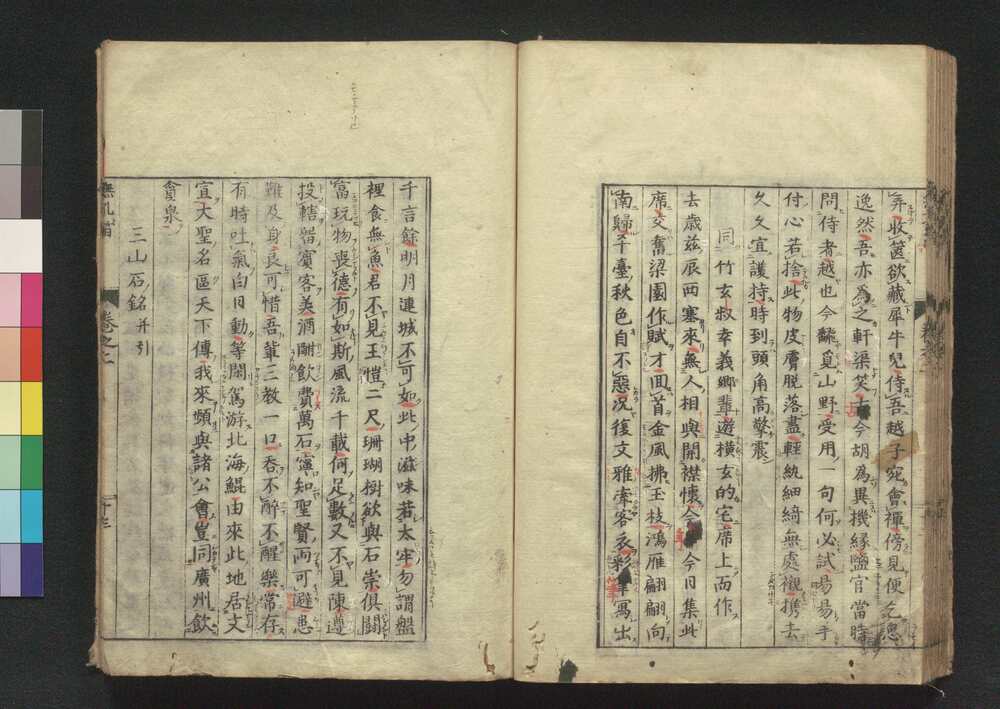 弃收篋欲藏犀牛兒侍吾越子宛會禪傍見便
逸然吾亦為之軒渠笑古今胡為異機緣鹽官當時
問侍者越也今觫覓山野受用一句何必試易易手
付心若捨此物皮膚脫落盡輕紈細綺無處襯携去
久久宜護持時到頭角高擎震
同竹玄叔幸義鄉輩遊橫玄的宅席上而作
去歲茲辰西塞來無人相與開襟懷今年今日集此
席交奮梁園作賦才回首金風拂玉枝鴻雁翩翩向
南歸千臺秋色自不惡況復文雅濟客衣彩筆寫出
千言餘明月連城不可如此中滋味若太牢勿謂盤
裡食無魚君不見王愷二尺珊瑚樹欲與石崇俱鬪
富玩物喪德有如斯風流千載何足數又不見陳遵
投轄留賓客美酒酣飲費萬石寧知聖賢兩可避患
難及身良可惜吾輩三教一口吞不醉不醒樂常存
有時吐氣白日動等閑駕游北海鯤由來此地居文
宣大聖名區天下傳我來頻與諸公會豈同廣州飲
貪泉
三山石銘并引
無孔笛
卷之二
十三